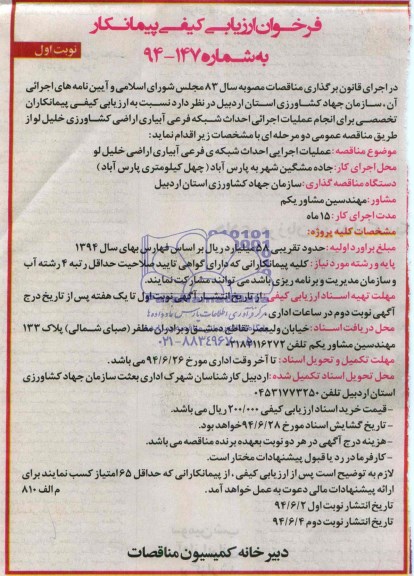 فرخوان ارزیابی کیفی پیمانکار
به شماره ۱۴۷-۹۴
نوبت اول
در اجرای قانون برگذاری مناقصات مصوبه سال ۸۳ مجلس شورای اسلامی و آیین نامه های اجرائی
آن ، سازمان جهاد کشاورزی استان اردبیل در نظر دارد نسبت به ارزیابی کیفی پیمانکاران
تخصصی برای انجام عملیات اجرائی احداث شبکه فرعی آبیاری اراضی کشاورزی خلیل لو از
طریق مناقصه عمومی دو مرحله ای با مشخصات زیر اقدام نماید:
موضوع مناقصه: عملیات اجرایی احداث شبکه ی فرعی آبیاری اراضی خلیل لو
محل اجرای کار: جاده مشگین شهر به پارس آباد ( چهل کیلومتری پارس آباد )
دستگاه مناقصه گذاری: سازمان جهاد کشاورزی استان اردبیل
مشاور: مهندسین مشاور یکم
مدت اجرای کار: ۱۵ ماه
مشخصات کلیه پروژه:
مبلغ برآورد اولیه: حدود تقریبی ۵۸ میلیارد ریال بر اساس فهارس بهای سال ۱۳۹۴
پایه و رشته مورد نیاز: کلیه پیمانکارانی که دارای گواهی تایید صلاحیت حداقل رتبه ۴ رشته آب
و سازمان مدیریت و برنامه ریزی باشد می توانند مشارکت نمایند.
مهلت تهیه اسناد ارزیابی کیفی: از تاریخ انتشار آگهی نوبت اول تا یک هفته پس از تاریخ درج
آگهی نوبت دوم در ساعات اداری.
محل دریافت اسناد: خیابان ولیعصر تقاطع دمشق و برادران مظفر (صبای شمالی) پلاک ۱۳۳
مهندسین مشاور یکم تلفن ۰۲۱۸۹۱۱۶۲۷۲
مهلت تکمیل و تحویل اسناد: تا آخر وقت اداری مورخ ۹۴/۶/۲۶ می باشد.
محل تحویل اسناد تکمیل شده: اردبیل کارشناسان شهرک اداری بعثت سازمان جهاد کشاورزی
استان اردبیل تلفن ۰۴۵۳۱۷۷۳۲۵۰
- قیمت خرید اسناد ارزیابی کیفی ۲۰۰/۰۰۰ ریال می باشد.
- تاریخ گشایش اسناد مورخ ۹۴/۶/۲۸ خواهد بود.
- هزینه درج آگهی در هر دو نوبت بعهده برنده مناقصه می باشد.
- کارفرما در رد یا قبول پیشنهادات مختار است.
لازم به توضیح است پس از ارزیابی کیفی ، از پیمانکارانی که حداقل ۶۵ امتیاز کسب نمایند برای
ارائه پیشنهادات مالی دعوت به عمل خواهد آمد.
م الف ۸۱۰
تاریخ انتشار نوبت اول ۹۴/۶/۲
تاریخ انتشار نوبت دوم ۹۴/۶/۴
دبیر خانه کمیسیون مناقصات